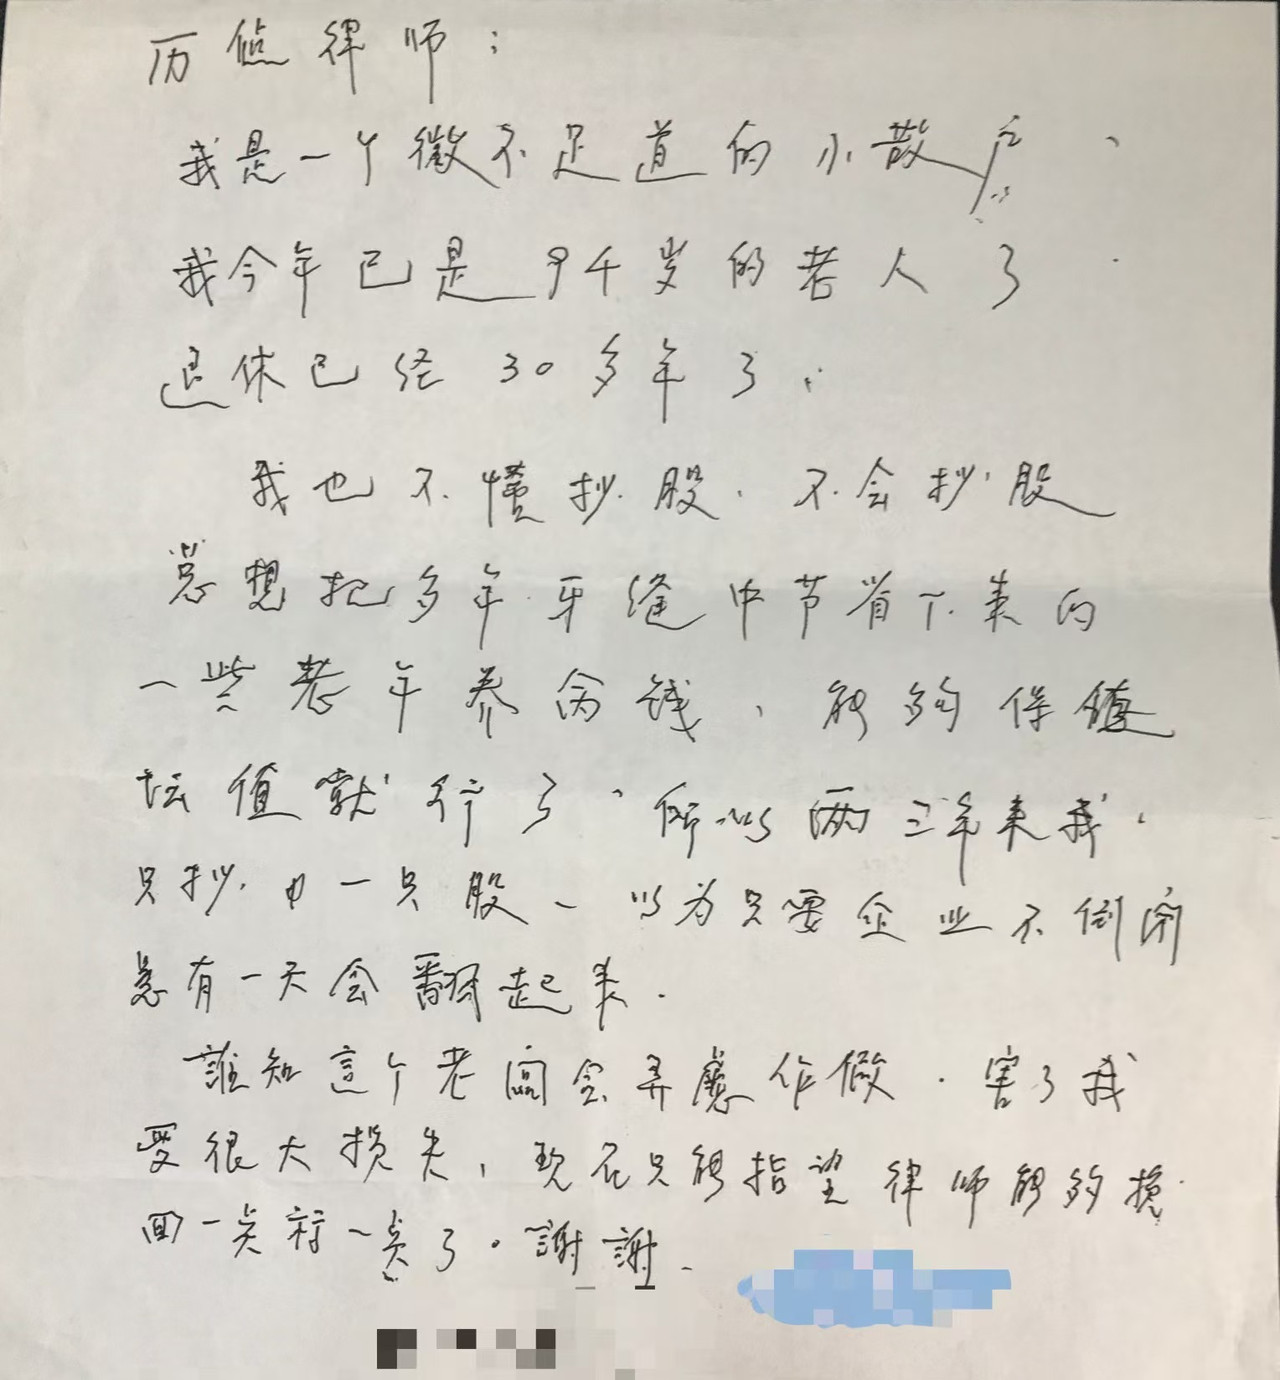 历 律师：
我是一个微不足道的小散户、
我今年已是9千岁的老人了.
退休已经30多年了.
我也不懂抄股.不会抄股
总想把多年牙缝中节省下来的
一些老年养命钱、能够保值
坛值就行了、所以两三年来我、
只抄中一只股、以为只要企业不倒闭
总有一天会翻起来.
誰知這个老闆会弄虚作假.害了我
受很大损失,现在只能指望律师能够挽
回一点 一点了.謝謝.